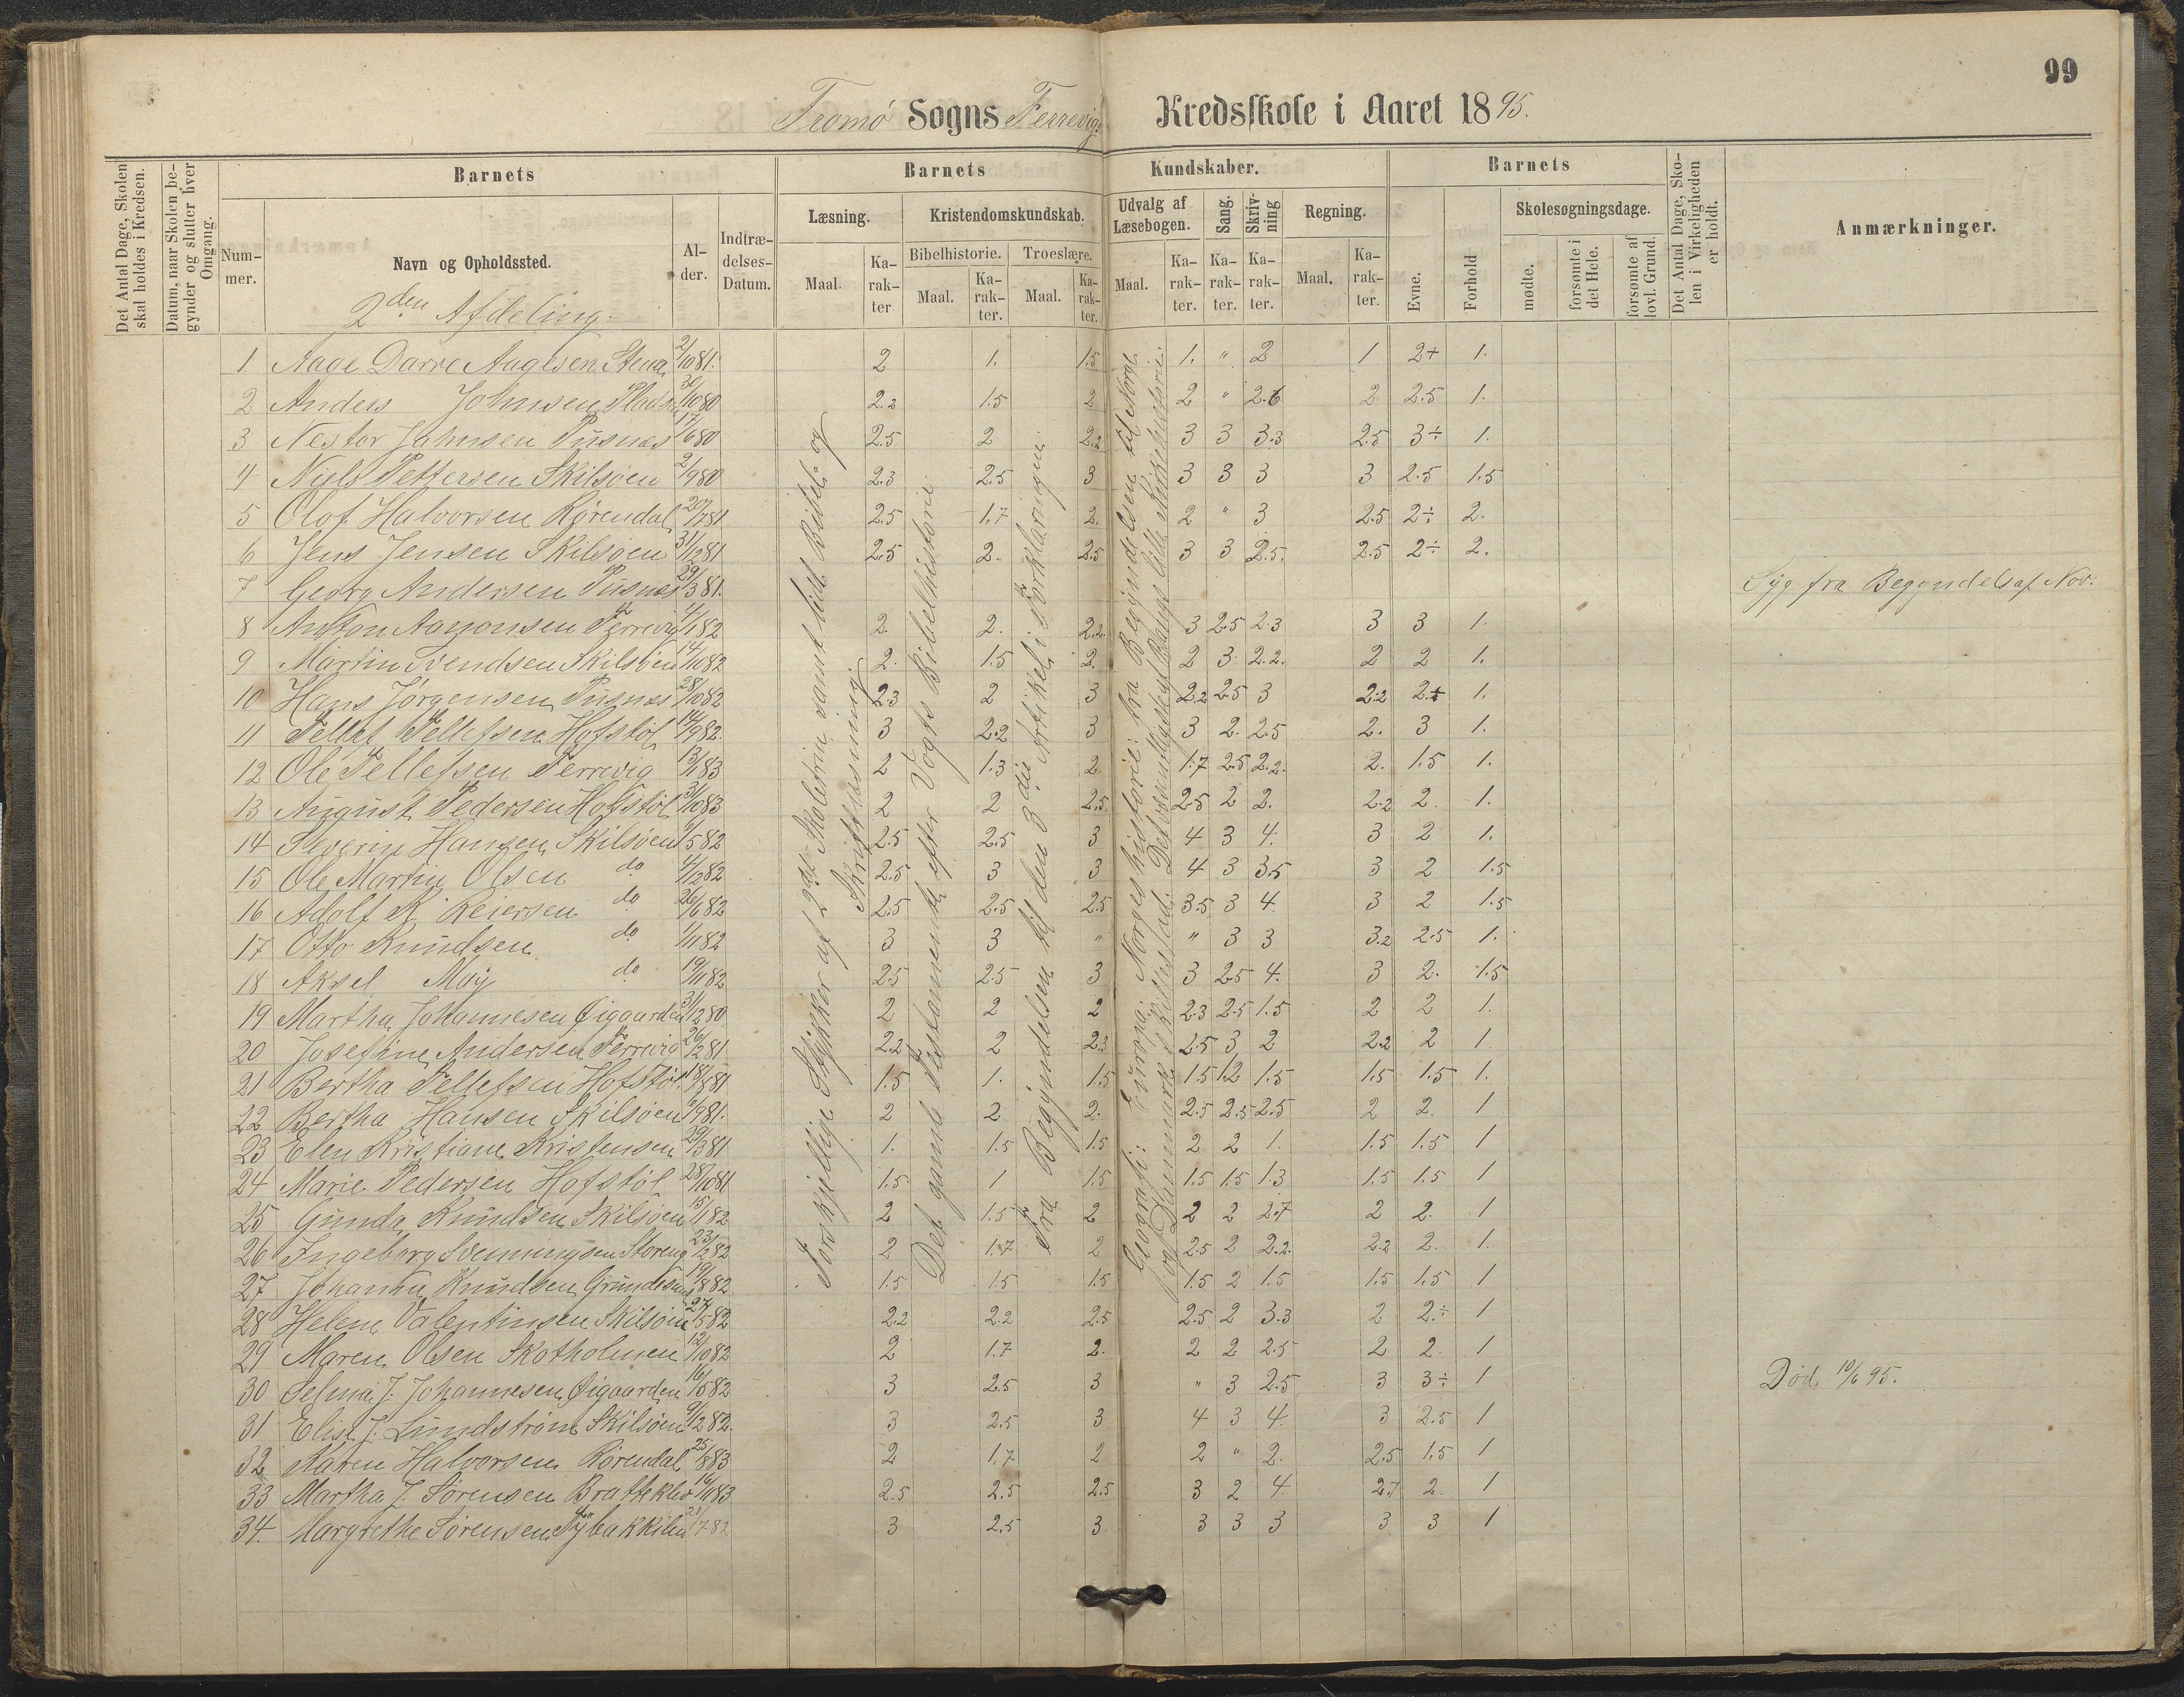 99
Tromø Sogns Færrevigs Kredsskole i Aaret 1895.
Det Antal Dage, Skolen skal holdes i Kredsen.
Datum, naar Skolen begynder og slutter hver Omgang.
Barnets
Nummer.
Navn og Opholdssted.
Alder.
Indtrædelses-Datum.
Barnets Kundskaber.
Læsning.
Maal.
Karakter
Kristendomskundskab.
Bibelhistorie.
Maal.
Karakter.
Troeslære.
Maal.
Karakter.
Udvalg af Læsebogen.
Maal.
Karakter.
Sang.
Karakter.
Skrivning
Karakter.
Regning.
Maal.
Karakter.
Barnets
Evne.
Forhold
Skolesøgningsdage.
mødte.
forsømte i det Hele.
forsømte af lovl. Grund.
Det Antal Dage, Skolen i Virkeligheden er holdt.
Anmærkninger.
2den Afdeling.
Forskjellige Stykker af 2det Skoletrin samt lidt Bibel- og Skriftlæsning.
Det gamle Testamente efter Vogts Bibelhistorie.
Fra Begyndelsen til den 3die Artikel i Forklaringen.
Geografi: Europa. Norgeshistorie: fra Begyndelsen til Norge og Danmarks Skillestad. Det væsentligste af Bangs lille Kirkehistorie.
1 Aage Darre Aagesen Stena 2/10 81. 2 1. 1.5 1. " 2 1 2+ 1.
2 Anders Johnsen Pladsen 30/10 80 2.2 1.5 2 2 " 2.6 2 2.5 1.
3 Nestor Jahnsen Pusnes 17/6 80 2.5 2 2.2 3 3 3.3 2.5 3÷ 1.
4 Niels Pettersen Skilsøen 2/9 80 2.3 2.5 3 3 3 3 3 2.5 1.5
5 Olof Halvorsen Rørendal 20/7 81 2.5 1.7 2. 2 " 3 2.5 2÷ 2.
6 Jens Jensen Skilsøen 31/12 81 2.5 2. 2.5 3 3 2.5. 2.5 2÷ 2.
7 Georg Andersen Pusnes 29/3 81. Syg fra Begyndels af Nov.
8 Anton Aanonsen Færrevig 4/1 82 2. 2. 2.2. 3 2.5 2.3 3 3 1.
9 Martin Svendsen Skilsøen 14/10 82 2. 1.5 2. 2 3 2.2. 2 2 1.
10 Hans Jørgensen Pusnes 28/10 82 2.3 2 3 2.2 2.5 3 2.2 2.+ 1.
11 Tellef Tellefsen Hofstøl 14/9 82. 3 2.2 3 3 2. 2.5 2. 3 1.
12 Ole Tellefsen Færrevig 13/1 83 2 1.3 2. 1.7 2.5 2.2. 2. 1.5 1.
13 August Pedersen Hofstøl 31/10 83 2 2 2.5. 2.5 2 2. 2.2 2. 1.
14 Severin Hansen Skilsøen 9/5 82 2.5 2.5 3 4 3 4. 3 2 1.
15 Ole Martin Olsen do 4/12 82 2.5 3 3 4 3 3.5 3 2 1.5
16 Adolf K. Reiersen do 26/6 82 2.5 2.5 2.5 3.5 3 4. 3 2 1.5
17 Otto Knudsen do 1/11 82 3 3 " " 3 3 3.2 2.5 1.
18 Aksel May do 19/11 82 2.5 2.5 3 3 2.5 4. 3 2. 1.5
19 Martha Johannesen Øigaarden 31/12 80 2 2 2 2.3 2.5 1.5 2 2 1.
20 Josefine Andersen Færrevig 26/2 81 2.2 2 2.3 2.5 3 2 2.2 2 1
21 Bertha Tellefsen Hofstøl 18/5 81 1.5 1. 1.5 1.5 1.2 1.5 1.5 1.5 1.
22 Bertha Hansen Skilsøen 6/9 81. 2 2 2. 2.5 2.5 2.5 2 2. 1
23 Elen Kristiane Kristensen 29/3 81 1. 1.5 1.5 2 2 1. 1.5 1.5 1
24 Marie Pedersen Hofstøl 28/10 81 1.5 1 1.5 1.5 1.5 1.3 1.5 1.5 1
25 Gunda Knudsen Skilsøen 15/1 82 2 1.5 2 2 2 2.7 2 2. 1
26 Ingeborg Svenningsen Storeng 23/2 82 2 1.7 2 2.5 2 2.2. 2.2 2. 1.
27 Johanne Knudsen Grundesund 19/8 82 1.5 1.5 1.5 1.5 2 1.5 1.5 1.5 1
28 Helene Valentinsen Skilsøen 27/5 82 2.2 2.2 2.5 2.5 2 3.3 2 2.÷ 1
29 Maren Olsen Skotholmen 12/10 82 2 1.7 2. 2 2 2.5 2 2. 1
30 Selma J. Johannesen Øigaarden 16/5 82 3 2.5 3 " 3 2.5 3 3÷ 1 Død 10/6 95.
31 Elise J. Lundstrøm Skilsøen 9/12 82. 3 2.5 3 4 3 4. 3 2.5 1
32 Karen Halvorsen Rørendal 25/8 83 2 1.7 2 2 " 2. 2.5 1.5 1
33 Martha J. Sørensen Bratteklev 16/11 83 2.5 2.5 2.5 3 2 4 2.7 2. 1
34. Margrethe Sørensen Tybakkilen 21/7 82 3 2.5 3 3 3 3 3 3 1